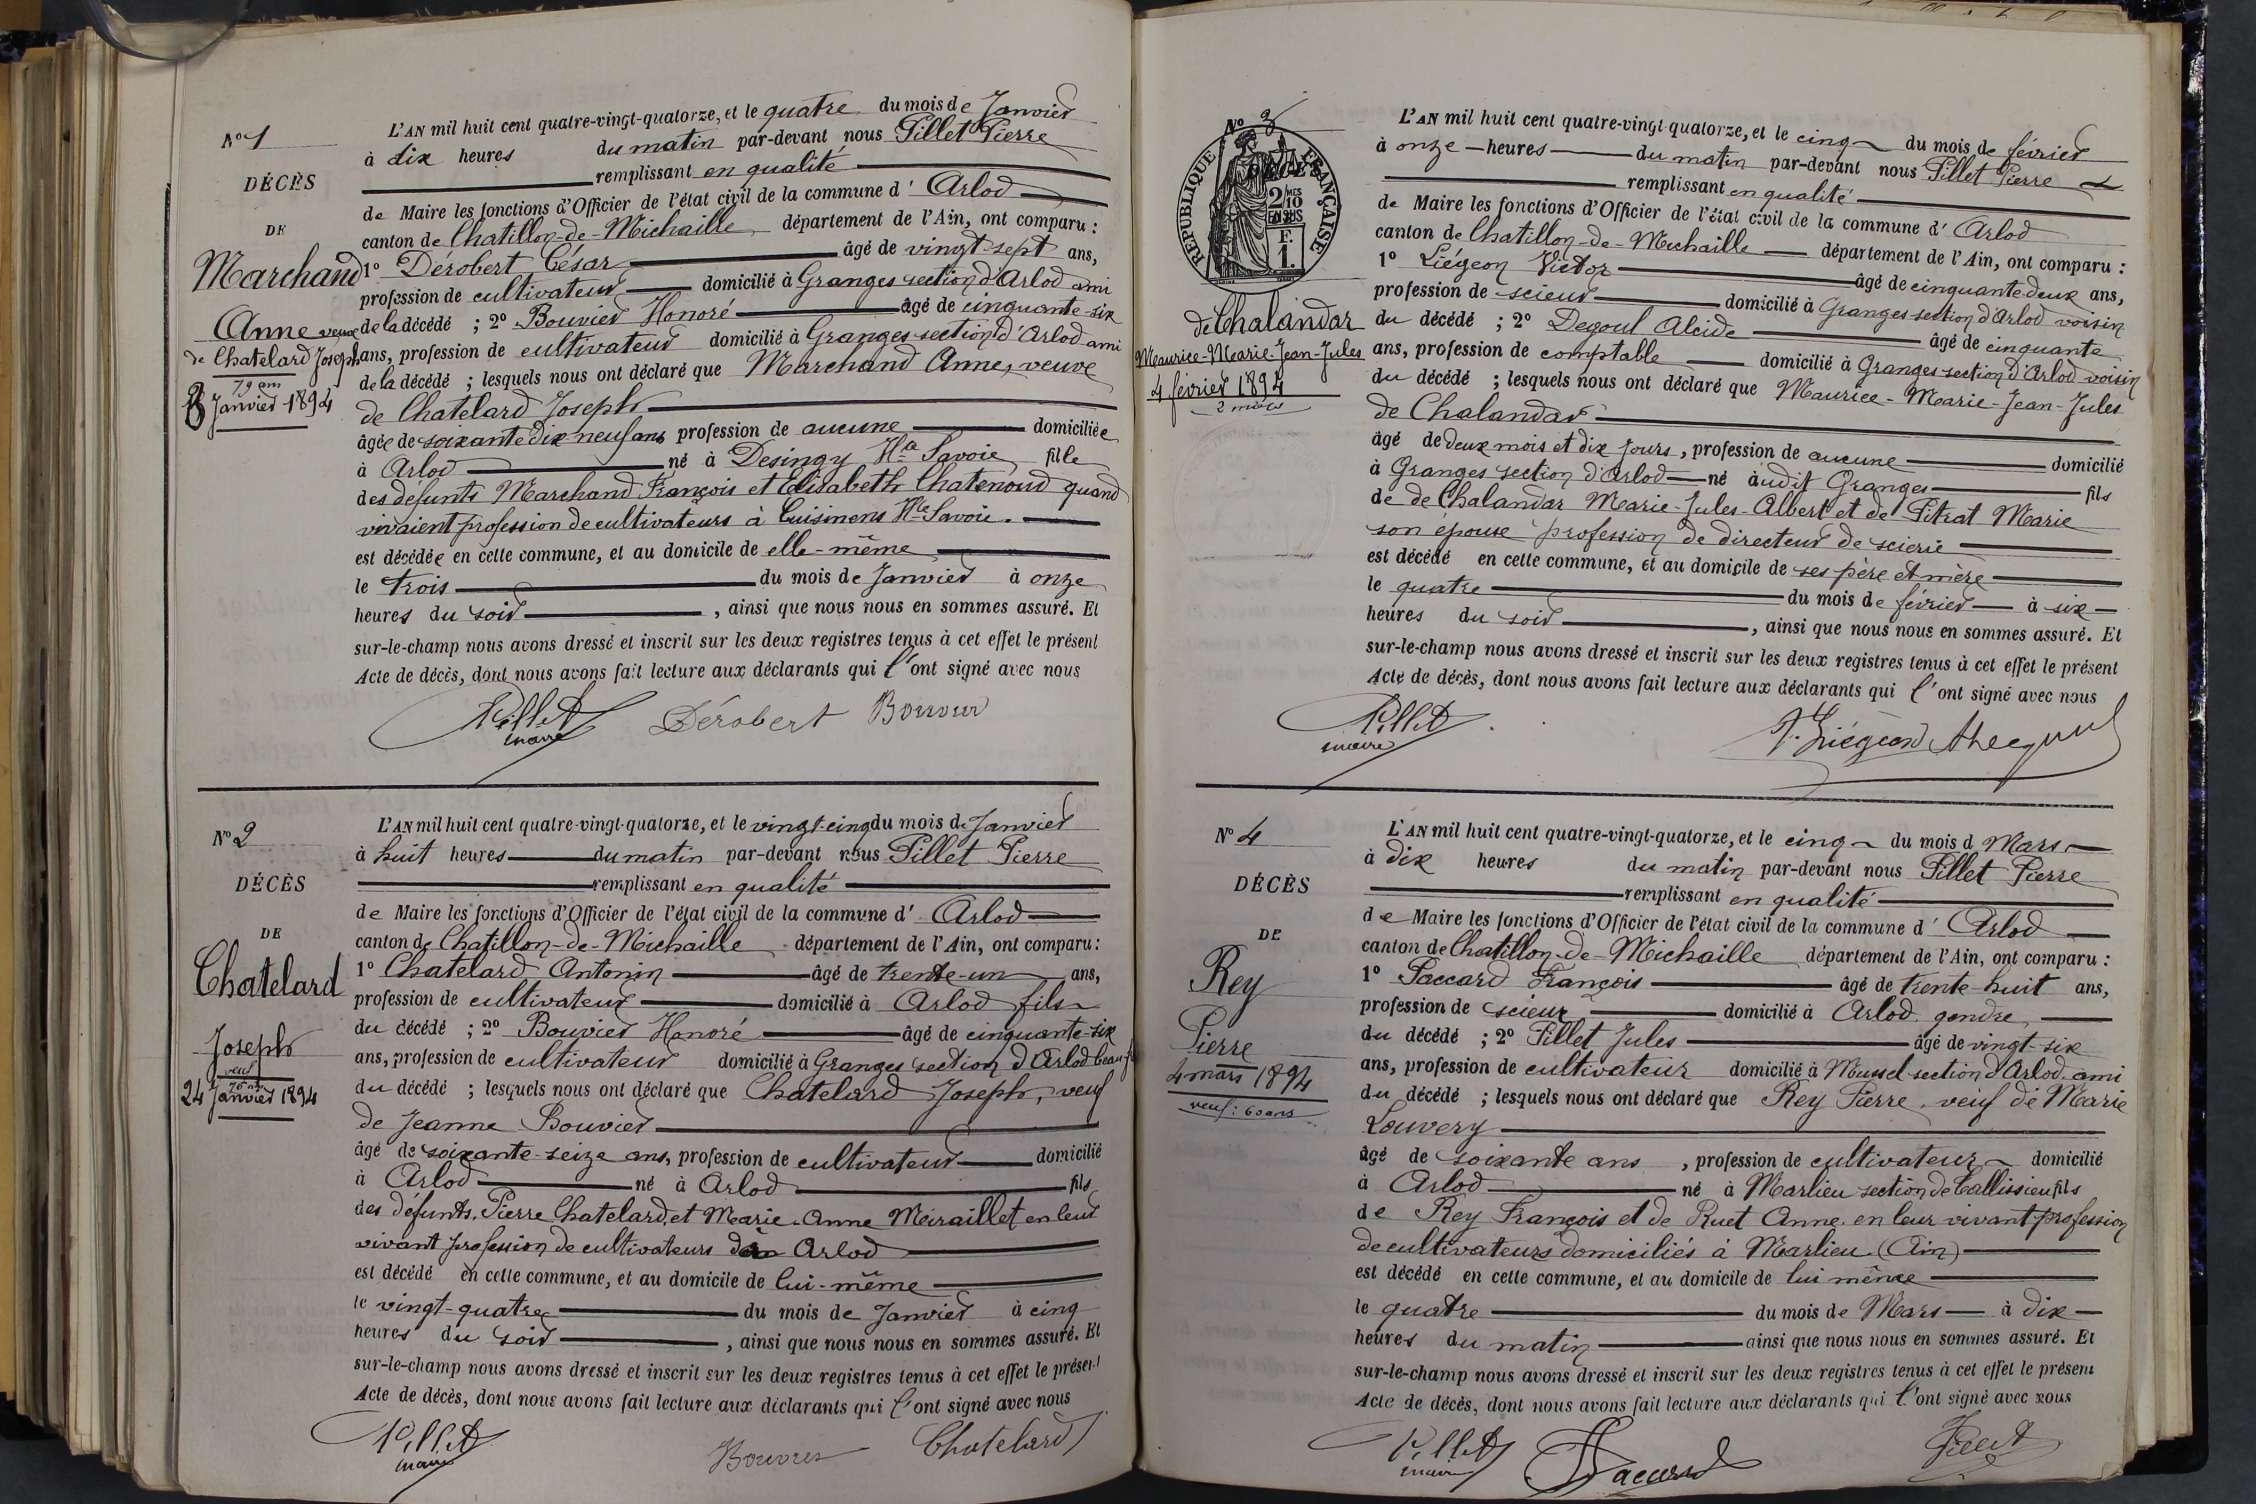 N° 1
DÉCÈS
DE
Marchand
Anne veuve
de Chatelard Joseph
79 ans
3 Janvier 1894
L'AN mil huit cent quatre-vingt-quatorze, et le quatre du mois de Janvier
à dix heures du matin par-devant nous Pillet Pierre
remplissant en qualité
de Maire les fonctions d'Officier de l'état civil de la commune d' Arlod
canton de Chatillon-de-Michaille département de l'Ain, ont comparu :
1° Dérobert César âgé de vingt-sept ans,
profession de cultivateur domicilié à Granges section d'Arlod ami
de la décédé ; 2° Bouvier Honoré âgé de cinquante-six
ans, profession de cultivateur domicilié à Granges section d'Arlod ami
de la décédé ; lesquels nous ont déclaré que Marchand Anne, veuve
de Chatelard Joseph
âgée de soixante dix-neuf ans profession de aucune domiciliée
à Arlod né à Desingy Hte Savoie fille
des défunts Marchand François et Elisabeth Chatenoud quand
vivaient profession de cultivateurs à Cuisinens Hte Savoie.
est décédée en cette commune, et au domicile de elle-même
le trois du mois de Janvier à onze
heures du soir , ainsi que nous nous en sommes assuré. Et
sur-le-champ nous avons dressé et inscrit sur les deux registres tenus à cet effet le présent
Acte de décès, dont nous avons fait lecture aux déclarants qui l'ont signé avec nous
Pillet Dérobert Bouvier
maire
N° 2
DÉCÈS
DE
Chatelard
Joseph
veuf
76 ans
24 Janvier 1894
L'AN mil huit cent quatre-vingt-quatorze, et le vingt-cinq du mois de Janvier
à huit heures du matin par-devant nous Pillet Pierre
remplissant en qualité
de Maire les fonctions d'Officier de l'état civil de la commune d' Arlod
canton de Chatillon-de-Michaille département de l'Ain, ont comparu :
1° Chatelard Antonin âgé de trente-un ans,
profession de cultivateur domicilié à Arlod fils
du décédé ; 2° Bouvier Honoré âgé de cinquante-six
ans, profession de cultivateur domicilié à Granges section d'Arlod beau-f
du décédé ; lesquels nous ont déclaré que Chatelard Joseph, veuf
de Jeanne Bouvier
âgé de soixante-seize ans, profession de cultivateur domicilié
à Arlod né à Arlod fils
des défunts Pierre Chatelard et Marie-Anne Meraillet en leur
vivant profession de cultivateurs Arlod
est décédé en cette commune, et au domicile de lui-même
le vingt-quatre du mois de Janvier à cinq
heures du soir , ainsi que nous nous en sommes assuré. Et
sur-le-champ nous avons dressé et inscrit sur les deux registres tenus à cet effet le présent
Acte de décès, dont nous avons fait lecture aux déclarants qui l'ont signé avec nous
Pillet Bouvier Chatelard
maire
N° 3
RÉPUBLIQUE FRANÇAISE
DÉCÈS
2 MES
10
EN SUS
F.
1.
de Chalandar
Maurice-Marie-Jean-Jules
4 février 1894
2 mois
L'AN mil huit cent quatre-vingt-quatorze, et le cinq du mois de février
à onze heures du matin par-devant nous Pillet Pierre
remplissant en qualité
de Maire les fonctions d'Officier de l'état civil de la commune d' Arlod
canton de Chatillon-de-Michaille département de l'Ain, ont comparu :
1° Liégeon Victor âgé de cinquante deux ans,
profession de scieur domicilié à Granges section d'Arlod voisin
du décédé ; 2° Degoul Alcide âgé de cinquante
ans, profession de comptable domicilié à Granges section d'Arlod voisin
du décédé ; lesquels nous ont déclaré que Maurice-Marie-Jean-Jules
de Chalandar
âgé de deux mois et dix jours, profession de aucune domicilié
à Granges section d'Arlod né audit Granges fils
de de Chalandar Marie-Jules-Albert et de Pitrat Marie
son épouse profession de directeur de scierie
est décédé en cette commune, et au domicile de ses père et mère
le quatre du mois de février à six
heures du soir , ainsi que nous nous en sommes assuré. Et
sur-le-champ nous avons dressé et inscrit sur les deux registres tenus à cet effet le présent
Acte de décès, dont nous avons fait lecture aux déclarants qui l'ont signé avec nous
Pillet V. Liégeon
maire
N° 4
DÉCÈS
DE
Rey
Pierre
4 mars 1894
veuf : 60 ans
L'AN mil huit cent quatre-vingt-quatorze, et le cinq du mois d Mars
à dix heures du matin par-devant nous Pillet Pierre
remplissant en qualité
de Maire les fonctions d'Officier de l'état civil de la commune d' Arlod
canton de Chatillon-de-Michaille département de l'Ain, ont comparu :
1° Saccard François âgé de trente-huit ans,
profession de scieur domicilié à Arlod gendre
du décédé ; 2° Pillet Jules âgé de vingt-six
ans, profession de cultivateur domicilié à Mussel section d'Arlod ami
du décédé ; lesquels nous ont déclaré que Rey Pierre, veuf de Marie
Louvery
âgé de soixante ans , profession de cultivateur domicilié
à Arlod né à Marlieu section de Callissieu fils
de Rey François et de Ruet Anne en leur vivant profession
de cultivateurs domiciliés à Marlieu (Ain)
est décédé en cette commune, et au domicile de lui même
le quatre du mois de Mars à dix
heures du matin ainsi que nous nous en sommes assuré. Et
sur-le-champ nous avons dressé et inscrit sur les deux registres tenus à cet effet le présent
Acte de décès, dont nous avons fait lecture aux déclarants qui l'ont signé avec nous
Pillet Saccard Pillet
maire